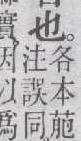 也。各本葩
注誤同
實因以爲